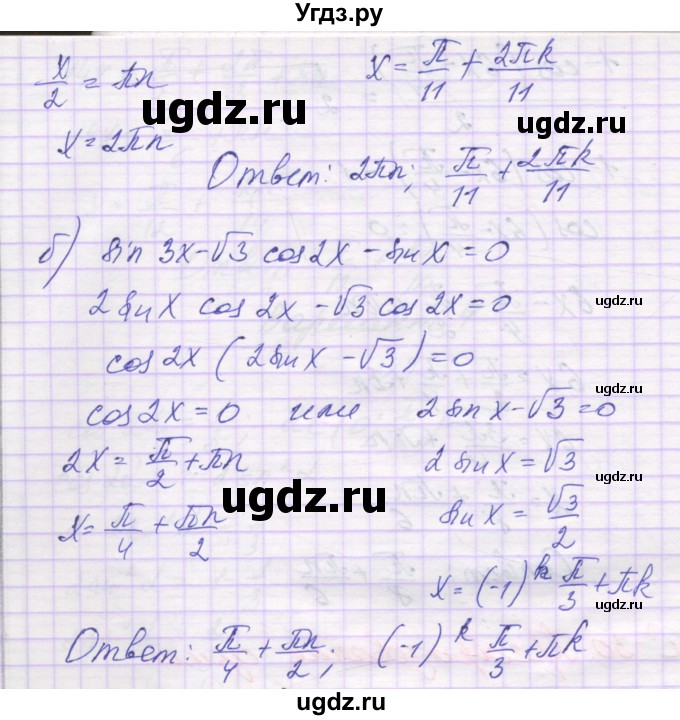 Угдз.ру
x/2 = πn    x = π/11 + 2πk/11
ugdz.ru
ugdz.ru
x = 2πn
Ответ: 2πn; π/11 + 2πk/11
б) sin 3x - √3 cos 2x - sin x = 0
2 sin x cos 2x - √3 cos 2x = 0
ugdz.ru
cos 2x (2 sin x - √3) = 0
ugdz.ru
cos 2x = 0 или 2 sin x - √3 = 0
2x = π/2 + πn    2 sin x = √3
ugdz.ru
x = π/4 + πn/2    sin x = √3/2
ugdz.ru
x = (-1)^k π/3 + πk
Ответ: π/4 + πn/2; (-1)^k π/3 + πk
ugdz.ru